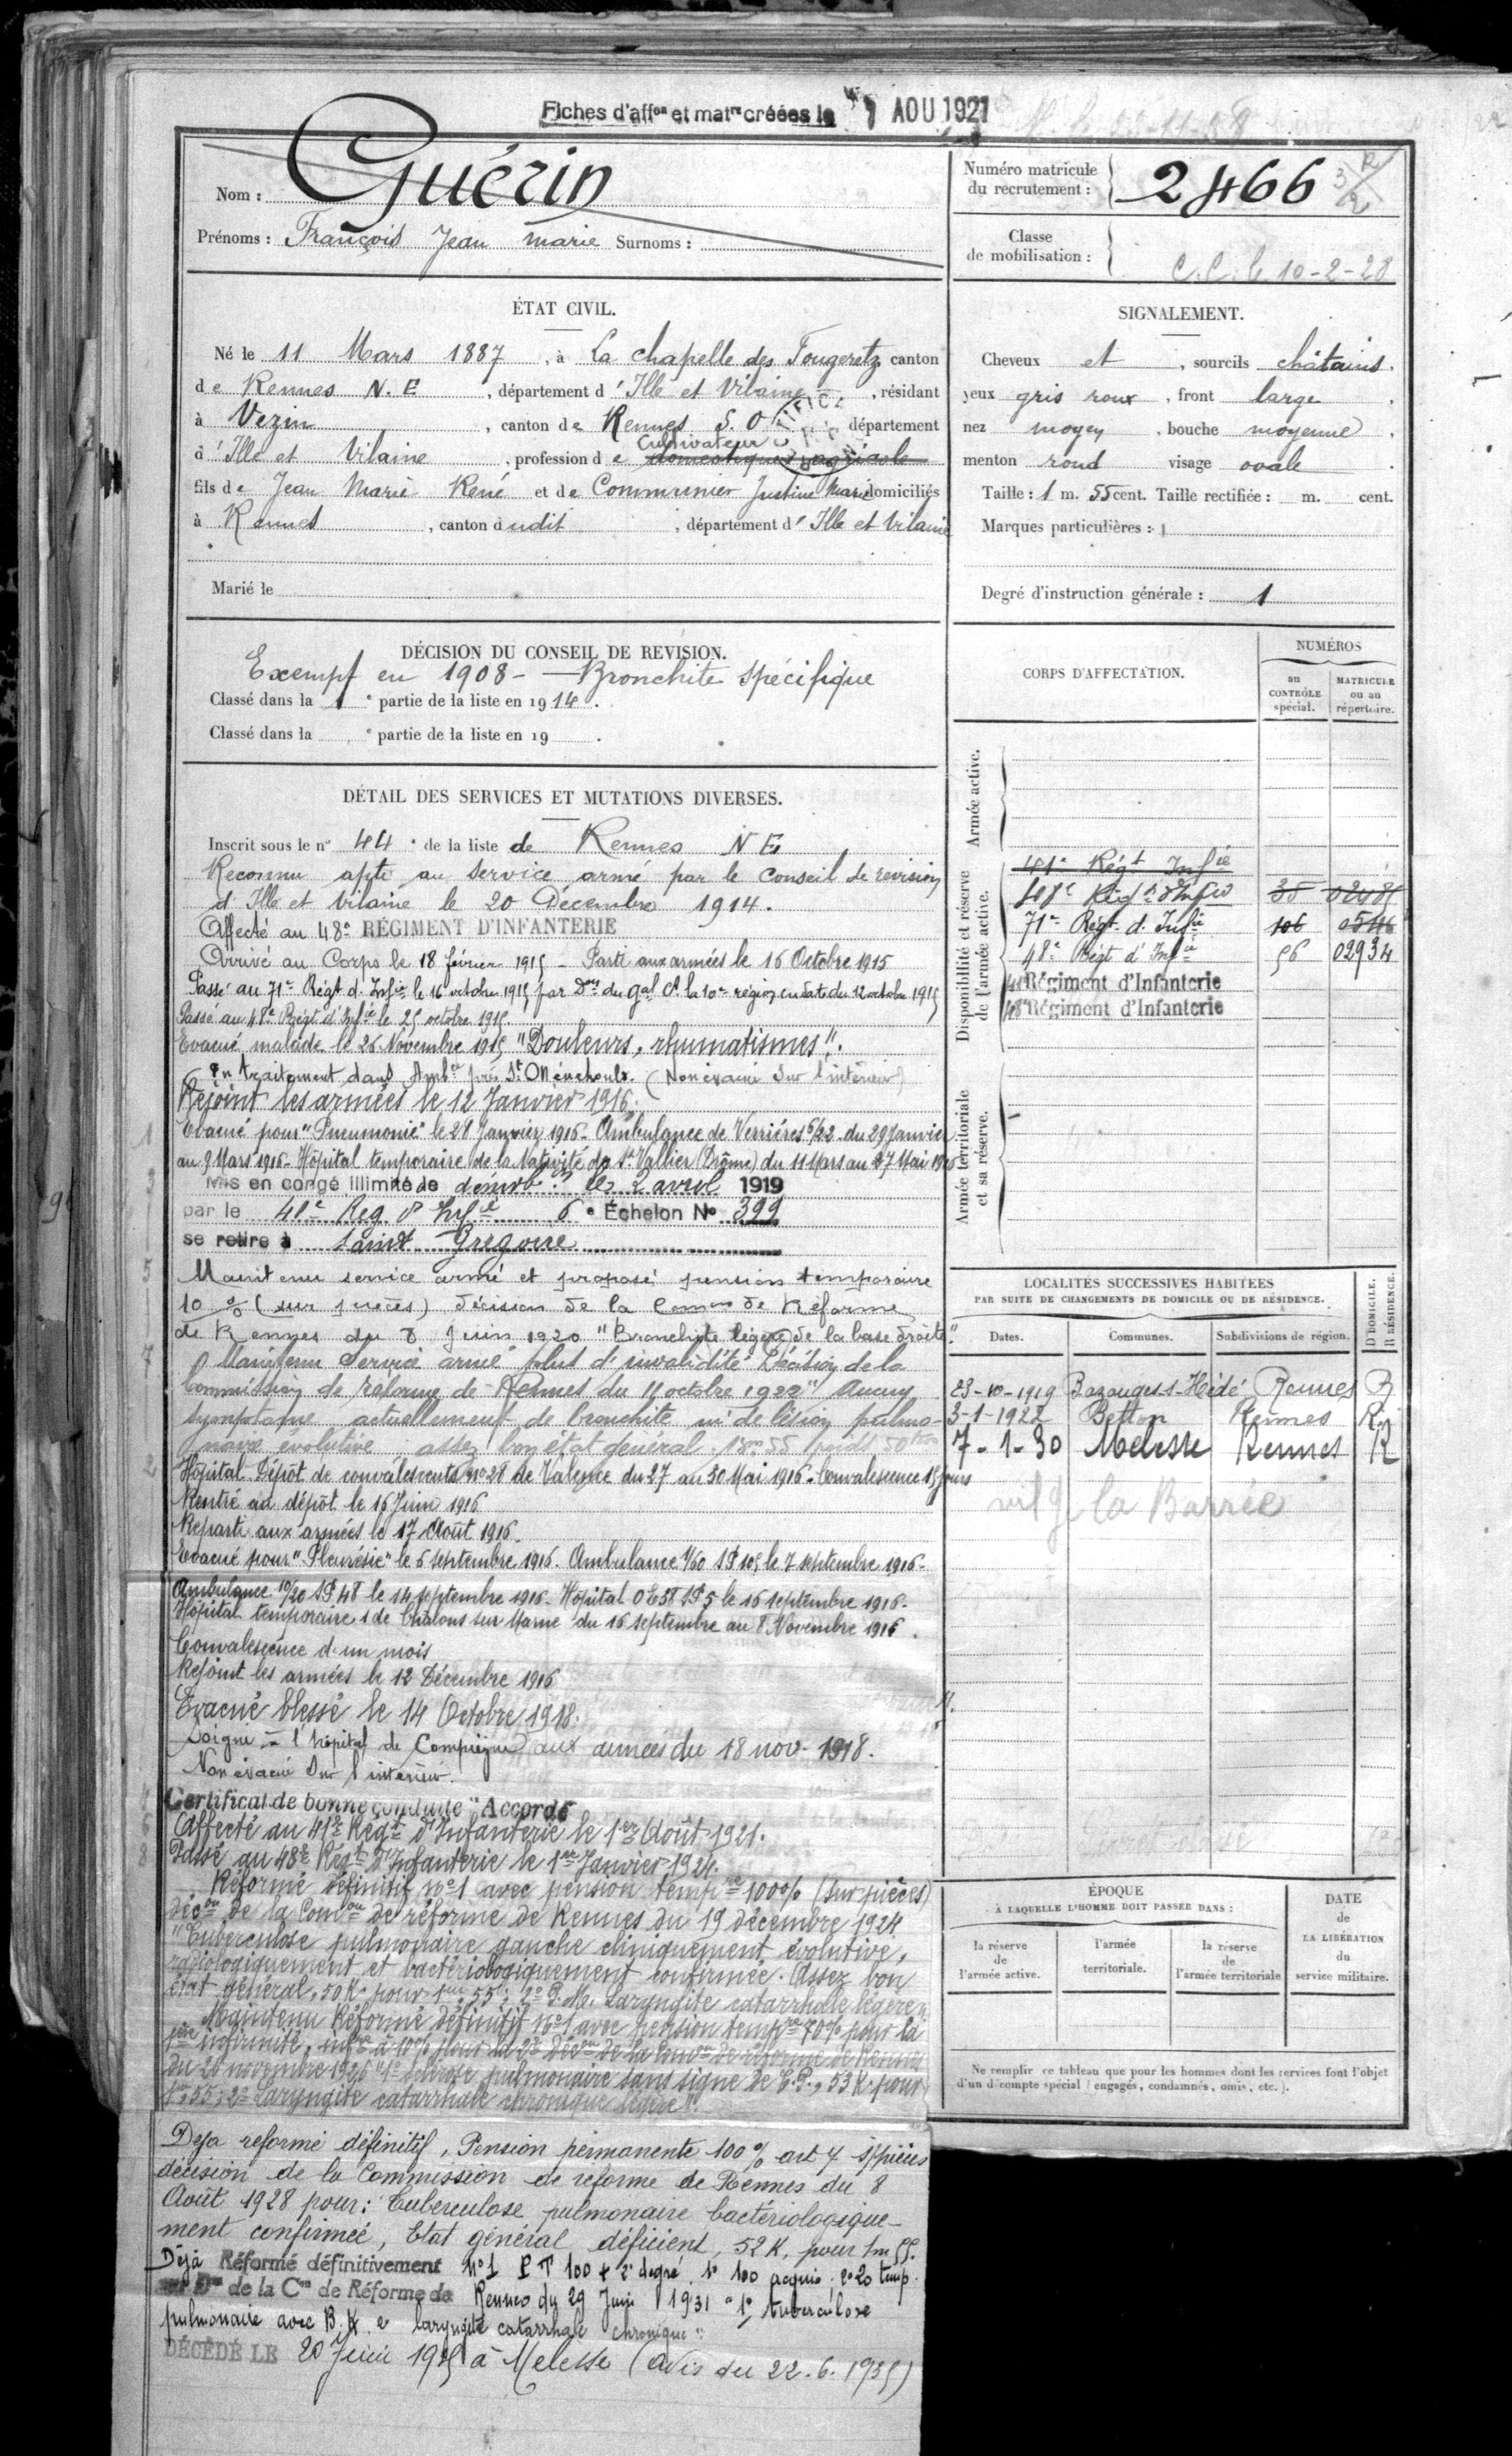 Fiches d'affon et matre créées le 1 AOU 1921
Nom : Guérin
Prénoms : François Jean Marie Surnoms :
Numéro matricule
du recrutement : 2466
Classe
de mobilisation :
C.C. le 10-2-28
ÉTAT CIVIL.
Né le 11 Mars 1887, à La chapelle des Fougeretz canton
de Rennes N.E, département d'Ille et Vilaine, résidant
à Vezin, canton de Rennes S.O département
Cultivateur
d'Ille et Vilaine, profession de domestique agricole
fils de Jean Marie René et de Communier Justine Marie domiciliés
à Rennes, canton dudit, département d'Ille et Vilaine
Marié le
SIGNALEMENT.
Cheveux et, sourcils châtains.
yeux gris roux, front large.
nez moyen, bouche moyenne.
menton rond visage ovale.
Taille : 1 m. 55 cent. Taille rectifiée : m. cent.
Marques particulières :
Degré d'instruction générale : 1
DÉCISION DU CONSEIL DE REVISION.
Exempt en 1908 - Bronchite spécifique
Classé dans la 1e partie de la liste en 1914.
Classé dans la e partie de la liste en 19 .
CORPS D'AFFECTATION.
NUMÉROS
au
CONTRÔLE
spécial.
MATRICULE
ou au
répertoire.
Armée active.
Disponibilité et réserve
de l'armée active.
41e Régt Infie
Régt d'Infie 35
71e Régt d. Infie 106
48e Régt d'Infie 56 02934
41e Régiment d'Infanterie
48e Régiment d'Infanterie
Armée territoriale
et sa réserve.
DÉTAIL DES SERVICES ET MUTATIONS DIVERSES.
Inscrit sous le n° 44 de la liste de Rennes NE
Reconnu apte au service armé par le Conseil de révision
d'Ille et Vilaine le 20 Décembre 1914.
Affecté au 48e RÉGIMENT D'INFANTERIE
Arrivé au Corps le 18 février 1915 - Parti aux armées le 16 Octobre 1915
Passé au 71e Régt d'Infie le 16 octobre 1915 par Don du gal Ct la 10e région en date du 12 octobre 1915
Passé au 48e Régt d'Infie le 25 octobre 1915.
Evacué malade le 26 Novembre 1915 "Douleurs, rhumatismes".
En traitement dans Ambce près Ste Menehould. (Non évacué sur l'intérieur)
Rejoint les armées le 12 Janvier 1916.
Evacué pour "Pneumonie" le 28 Janvier 1916 - Ambulance de Verrières 6/22 du 29 Janvier
au 9 Mars 1916 - Hôpital temporaire de la Nativité de St Vallier (Drôme) du 11 Mars au 27 Mai 1916
Mis en congé illimité de démobon le 2 avril 1919
par le 41e Reg d'Infie 6e Échelon N° 399
se retire à Saint Gregoire
Maintenu service armé et proposé pension temporaire
10 % (sur pièces) décision de la Comon de Réforme
de Rennes du 8 Juin 1920 "Bronchite légère de la base droite".
Maintenu service armé plus d'invalidité Décision de la
Commission de réforme de Rennes du 11 octobre 1922 "Aucun
symptome actuellement de bronchite ni de lésion pulmo-
naire évolutive assez bon état général 1m 55 poids 50
Hôpital Dépôt de convalescents n° 28 de Valence du 27 au 30 Mai 1916 - Convalescence 15 jours
Rentré au dépôt le 16 Juin 1916
Reparti aux armées le 17 Août 1916.
Evacué pour "Pleurésie" le 6 septembre 1916. Ambulance 1/60 SP 105 le 7 septembre 1916.
Ambulance 10/20 SP 48 le 14 septembre 1916 - Hôpital OE 38 SP 5 le 16 septembre 1916.
Hôpital temporaire 1 de Châlons sur Marne du 16 septembre au 8 Novembre 1916.
Convalescence d'un mois
Rejoint les armées le 12 Décembre 1916
Evacué blessé le 14 Octobre 1918.
Soigné à l'hôpital de Compiègne aux armées du 18 nov. 1918.
Non évacué sur l'intérieur.
Certificat de bonne conduite "Accordé"
Affecté au 41e Régt d'Infanterie le 1er Août 1921.
Passé au 48e Régt d'Infanterie le 1er Janvier 1924.
Réformé définitif n° 1 avec pension tempre 100% (sur pièces)
décon de la Comon de réforme de Rennes du 19 décembre 1924
"Tuberculose pulmonaire gauche cliniquement évolutive,
radiologiquement et bactériologiquement confirmée. Assez bon
état général, 50 K. pour 1m 55; 2° P.M. Laryngite catarrhale légère"
Maintenu Réformé définitif N° 1 avec pension tempre 70% pour la
1ère infirmité, infre à 10% pour la 2e Décon de la Comon de réforme de Rennes
du 20 novembre 1926 "1° Sclérose pulmonaire sans signe de T.P., 53 K. pour
1m 55; 2° Laryngite catarrhale chronique légère".
Déjà réformé définitif, Pension permanente 100% art 4 s/pièces
décision de la Commission de réforme de Rennes du 8
Août 1928 pour : Tuberculose pulmonaire bactériologique-
ment confirmée, Etat général déficient, 52 K. pour 1m 55.
Déjà Réformé définitivement n° 1 P T 100 + 2e degré. 1° 100 acquis; 2° 20 temp.
Don de la Con de Réforme de Rennes du 29 Juin 1931 "1° tuberculose
pulmonaire avec B.K. 2° laryngite catarrhale chronique"
DÉCÉDÉ LE 20 Juin 1935 à Melesse (Avis du 22.6.1935)
LOCALITÉS SUCCESSIVES HABITÉES
PAR SUITE DE CHANGEMENTS DE DOMICILE OU DE RÉSIDENCE.
Dates. Communes. Subdivisions de région. D DOMICILE. R RÉSIDENCE.
23-10-1919 Bazouges-s-Hédé Rennes R
3-1-1922 Betton Rennes R
7-1-30 Melesse Rennes R
vilge la Barrée
ÉPOQUE
À LAQUELLE L'HOMME DOIT PASSER DANS :
la réserve
de
l'armée active.
l'armée
territoriale.
la réserve
de
l'armée territoriale
DATE
de
LA LIBÉRATION
du
service militaire.
Ne remplir ce tableau que pour les hommes dont les services font l'objet
d'un décompte spécial (engagés, condamnés, omis, etc.).